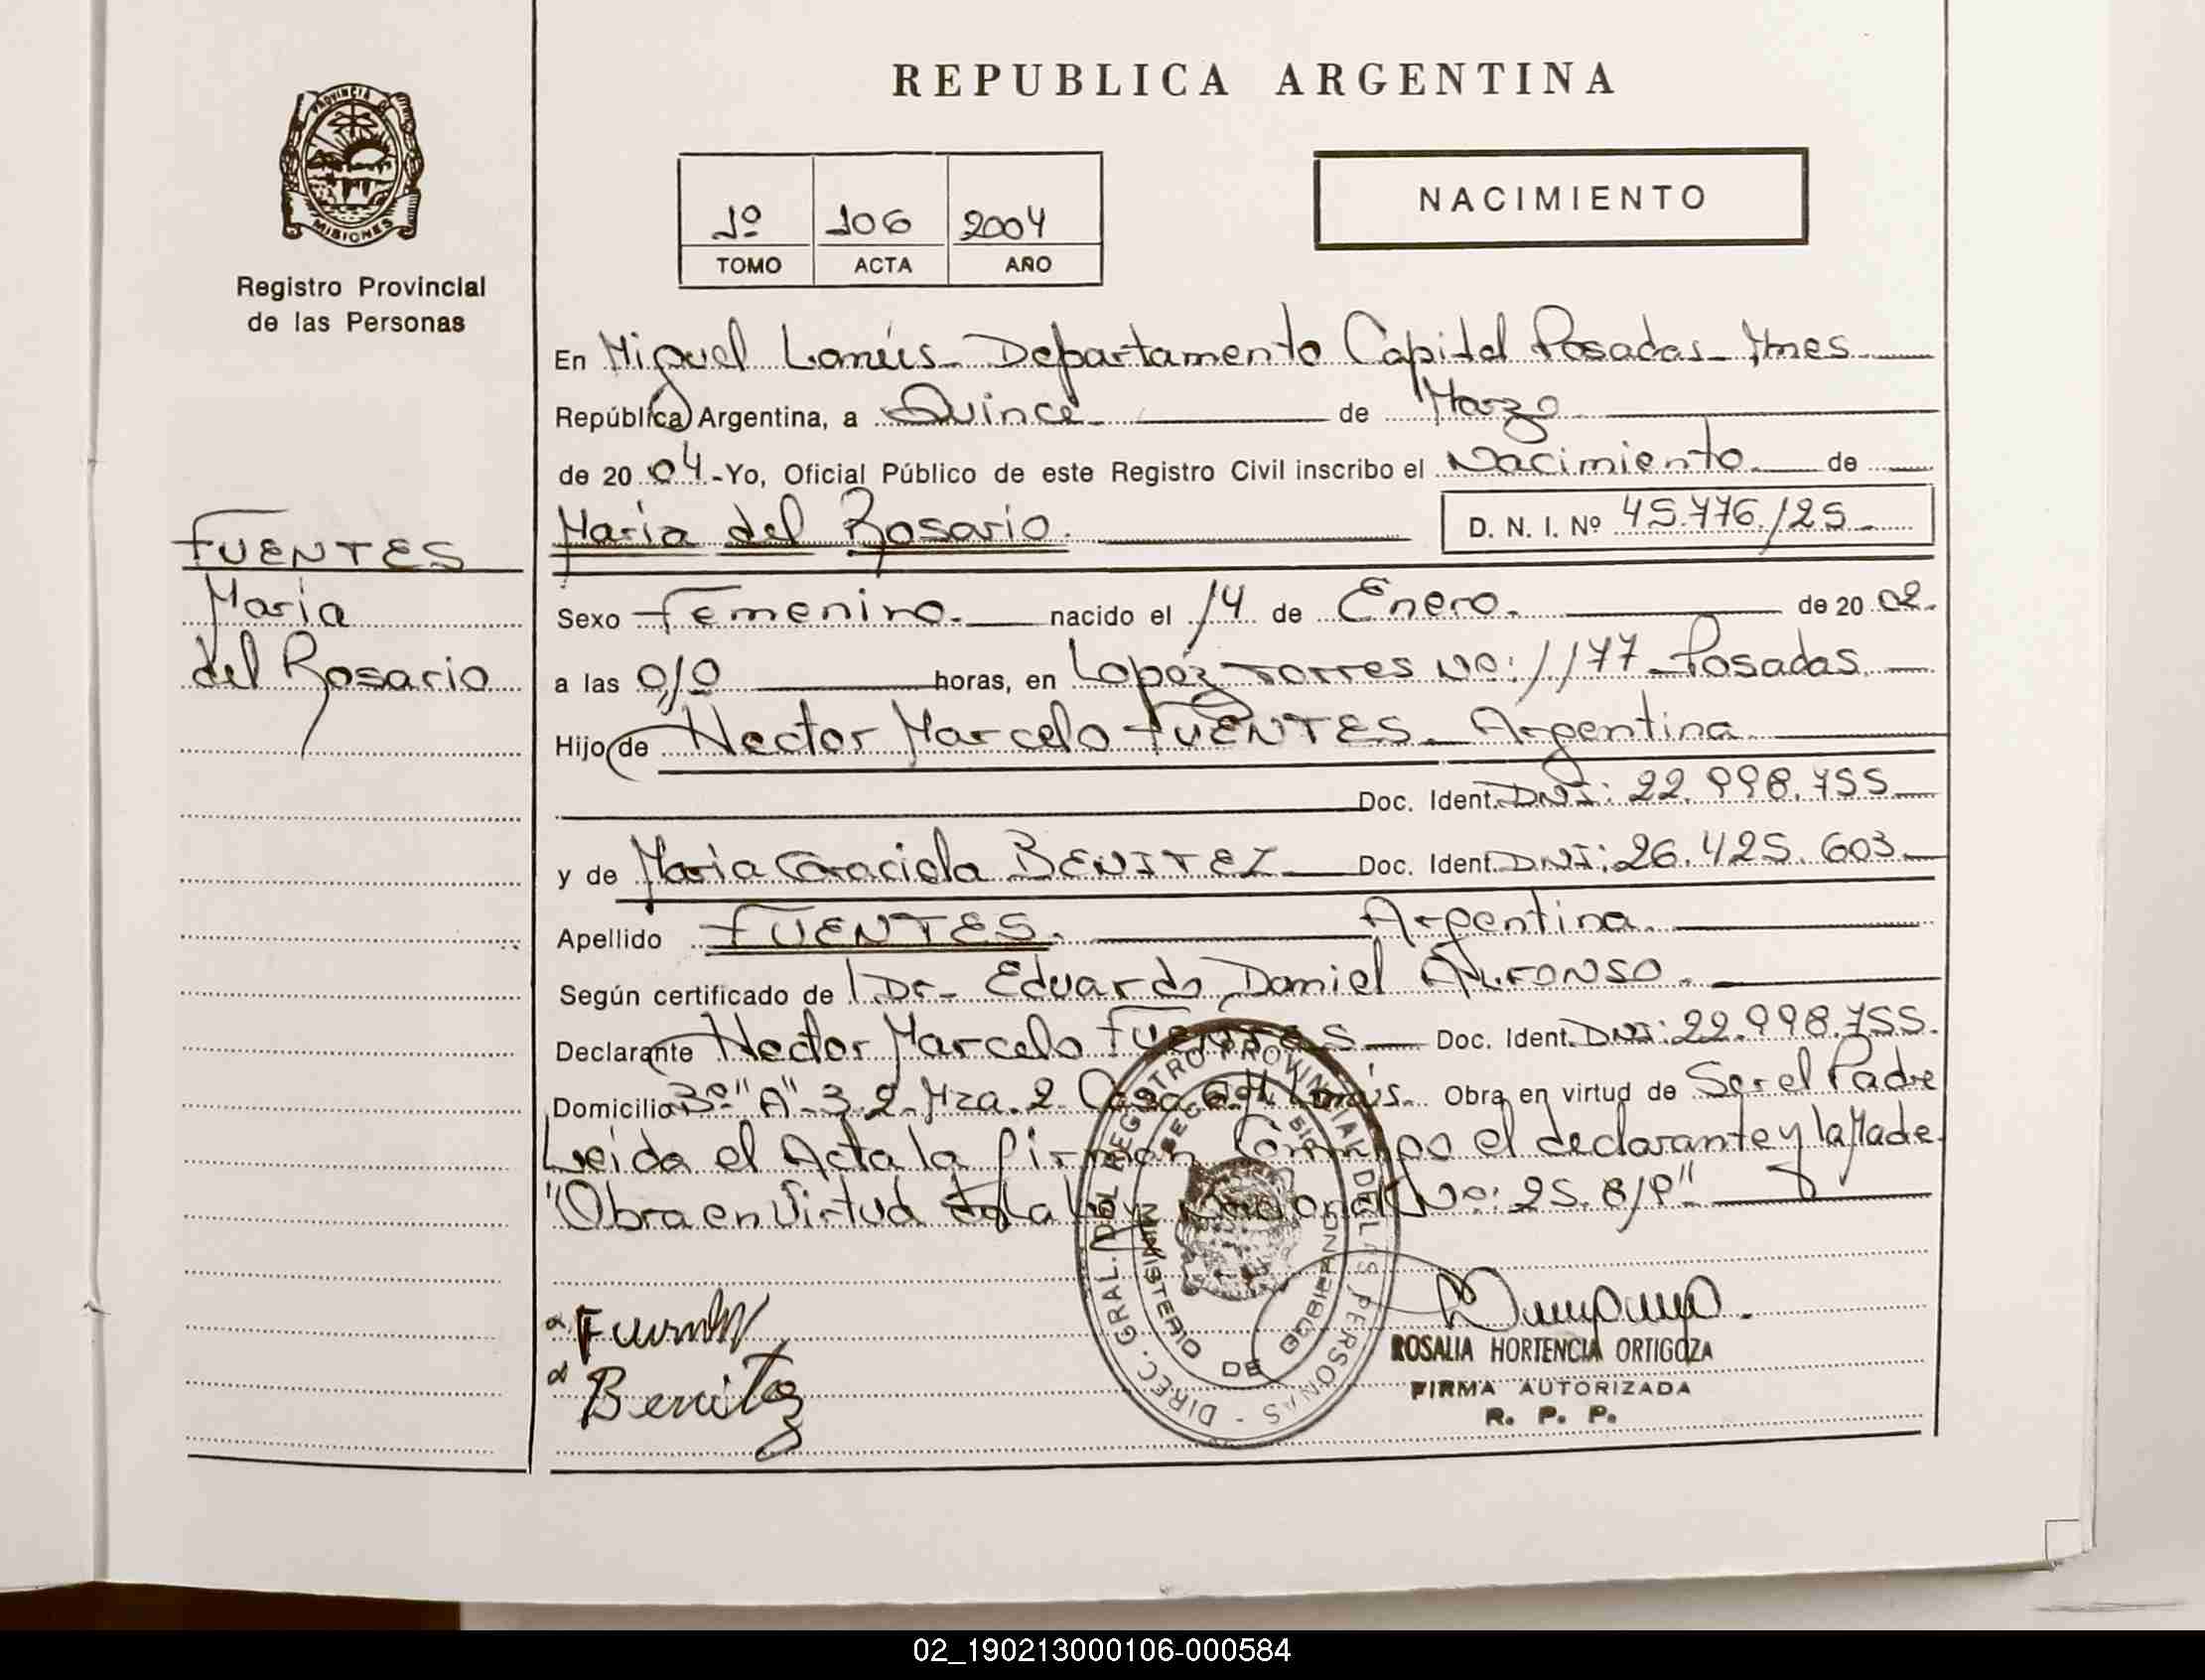 REPUBLICA ARGENTINA
PROVINCIA DE MISIONES
Registro Provincial
de las Personas
1º 106 2004
TOMO ACTA AÑO
NACIMIENTO
En Miguel Lanús - Departamento Capital Posadas - Mnes
República Argentina, a Quince de Marzo
de 2004 - Yo, Oficial Público de este Registro Civil inscribo el Nacimiento de
Maria del Rosario. D. N. I. Nº 45.776.125
FUENTES
Maria
del Rosario
Sexo Femenino. nacido el 14 de Enero. de 2002.
a las 0,10 horas, en Lopéz Torres No: 1177 - Posadas.
Hijo de Hector Marcelo FUENTES. Argentina
Doc. Ident. DNI: 22.998.755
y de Maria Graciela BENITEZ Doc. Ident. DNI: 26.425.603.
Apellido FUENTES. Argentina.
Según certificado de Dr. Eduardo Daniel ALFONSO.
Declarante Hector Marcelo FUENTES Doc. Ident. DNI: 22.998.755.
Domicilio Bº "A" 3.2 Mza. 2 Casa 6 M. Lanús. Obra en virtud de Ser el Padre
Leida el Acta la firman Conmigo el declarante y la Madre.
"Obra en Virtud de la Ley Nacional No: 25.819"
Fuentes
Benitez
DIREC. GRAL. DEL REGISTRO PROVINCIAL DE LAS PERSONAS
MINISTERIO DE GOBIERNO
ROSALIA HORTENCIA ORTIGOZA
FIRMA AUTORIZADA
R. P. P.
02_190213000106-000584